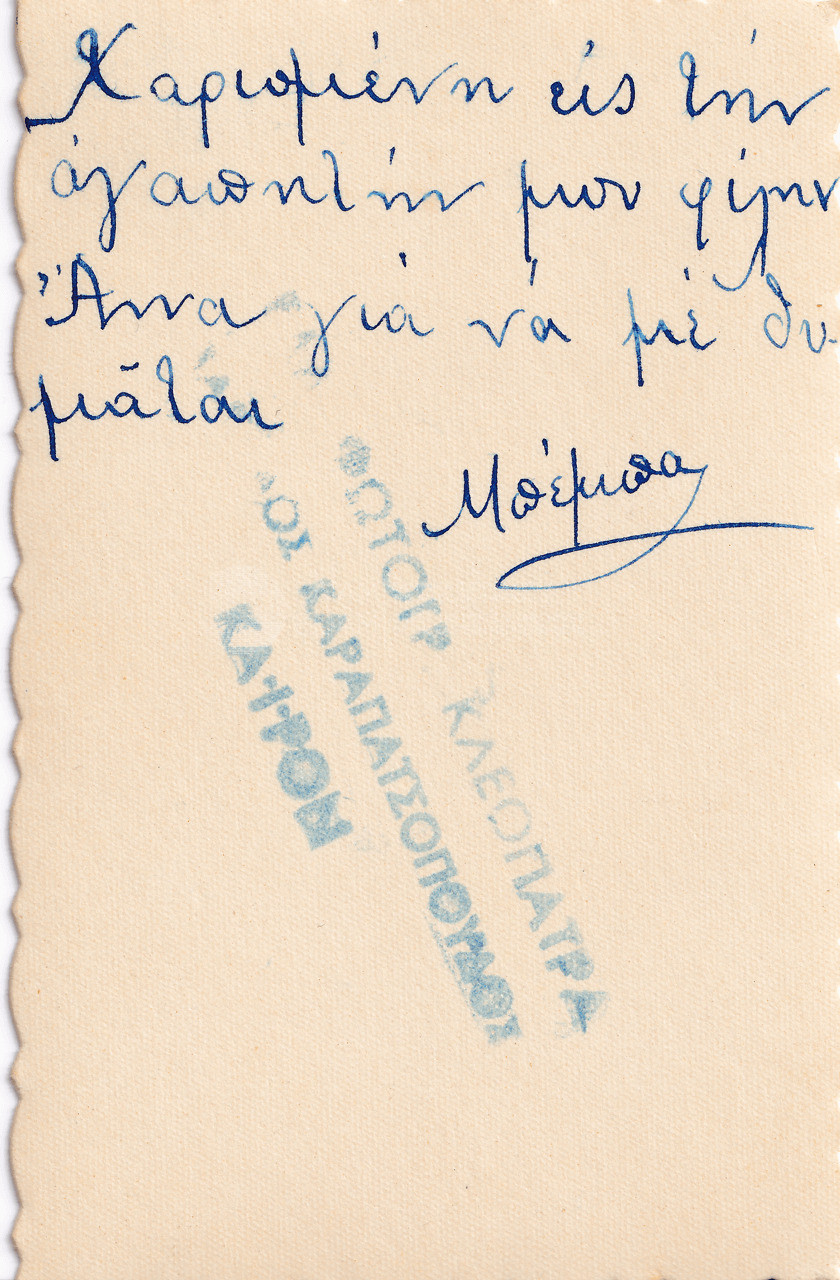 Χαρισμένη εἰς τήν
ἀγαπητήν μου φίλην
Ἄννα γιά νά μέ θυ-
μᾶται
Μπέμπα
ΦΩΤΟΓΡ ΚΛΕΟΠΑΤΡΑ
ΟΣ ΚΑΡΑΠΑΤΣΟΠΟΥΛΟΣ
ΚΑ·Ι·ΡΟΝ